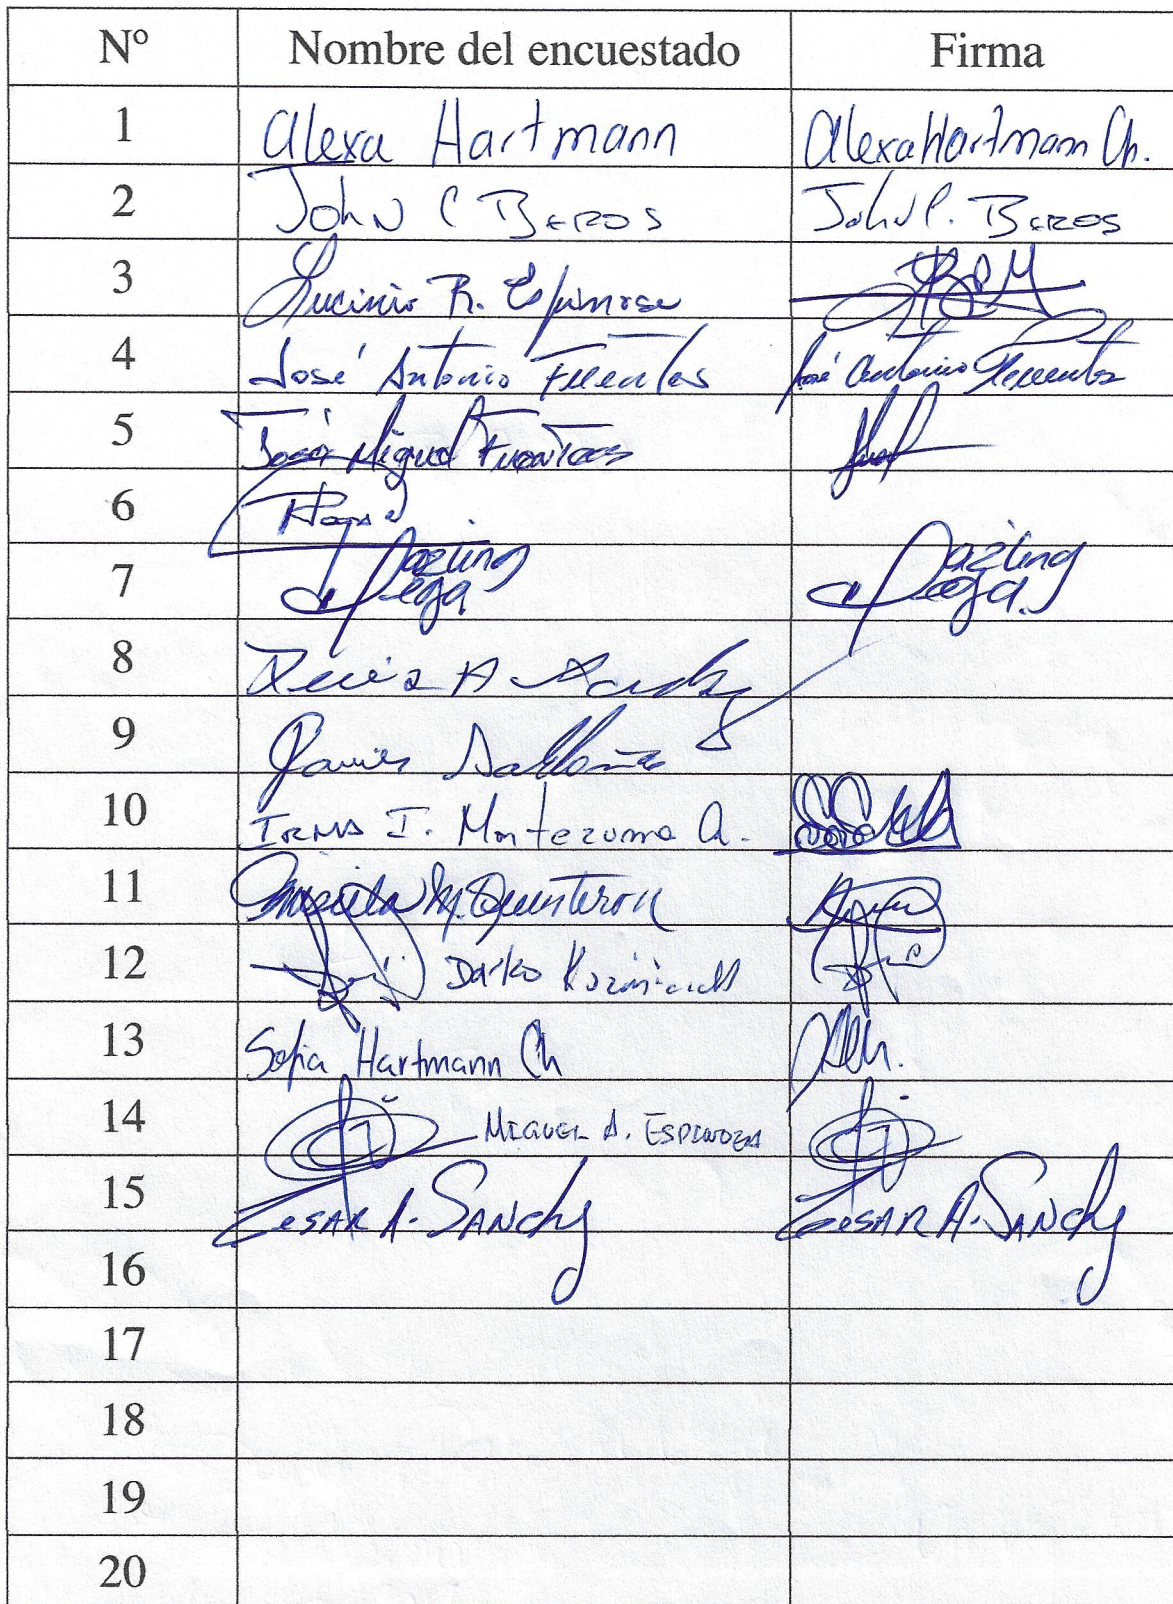 Nº Nombre del encuestado Firma
1 Alexa Hartmann Alexa Hartmann Ch.
2 John C Beros John C. Beros
3 Lucinio R. Espinosa
4 José Antonio Fuentes José Antonio Fuentes
5 José Miguel Fuentes
6
7 Dazling Vega Dazling Vega
8 A.
9 Javier
10 Irma I. Montezuma Q.
11 M. Quintero
12 Darko
13 Sofia Hartmann Ch
14 Miguel A. Espinoza
15 Cesar A. Sanchz Cesar A. Sanchz
16
17
18
19
20